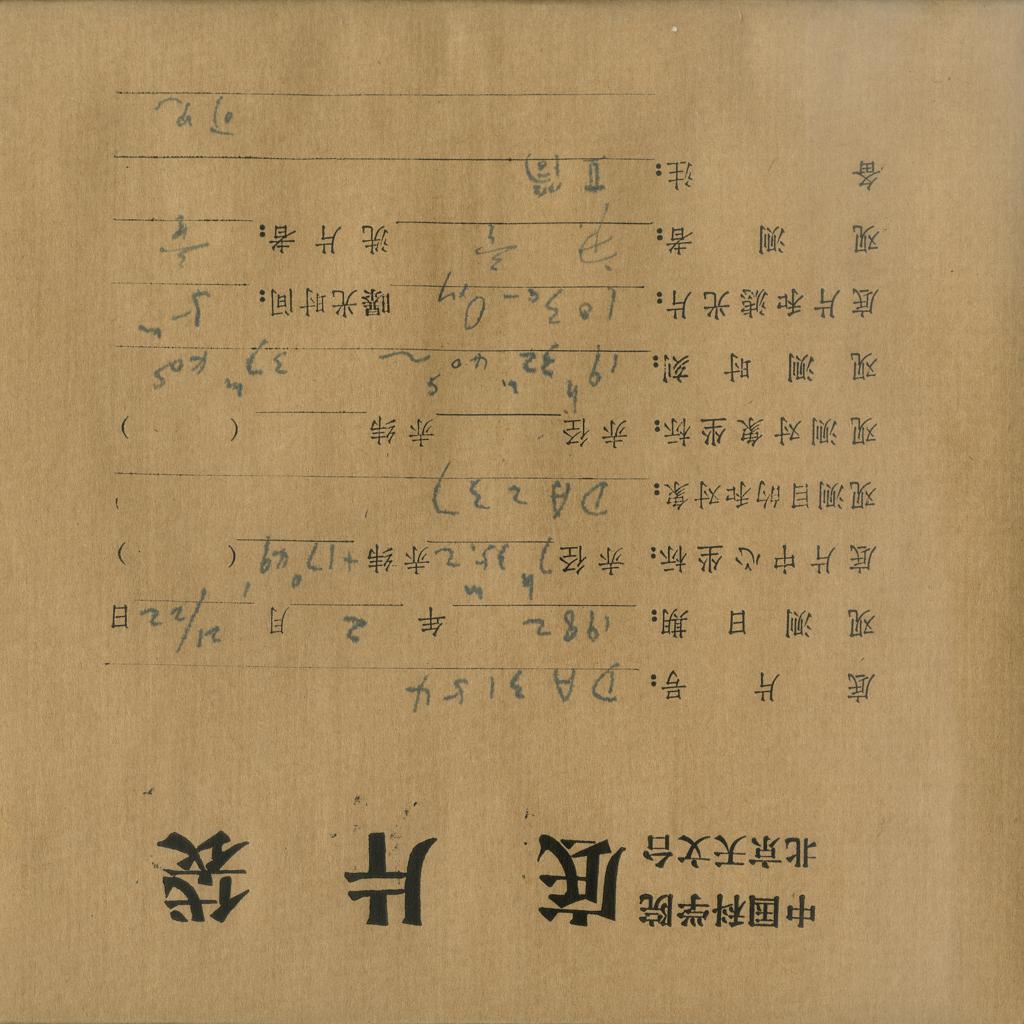 中国科学院
北京天文台
底片袋
底片号: DA3154
观测日期: 1982年2月21/22日
底片中心坐标: 赤径7h35m.2赤纬+17°49′( )
观测目的和对象: DA237
观测对象坐标: 赤径 赤纬 ( )
观测时刻: 19h32m40s~37m40s
底片和滤光片: 103a-O, 曝光时间: 5m
观测者: 洗片者:
备注: Ⅱ筒
可见